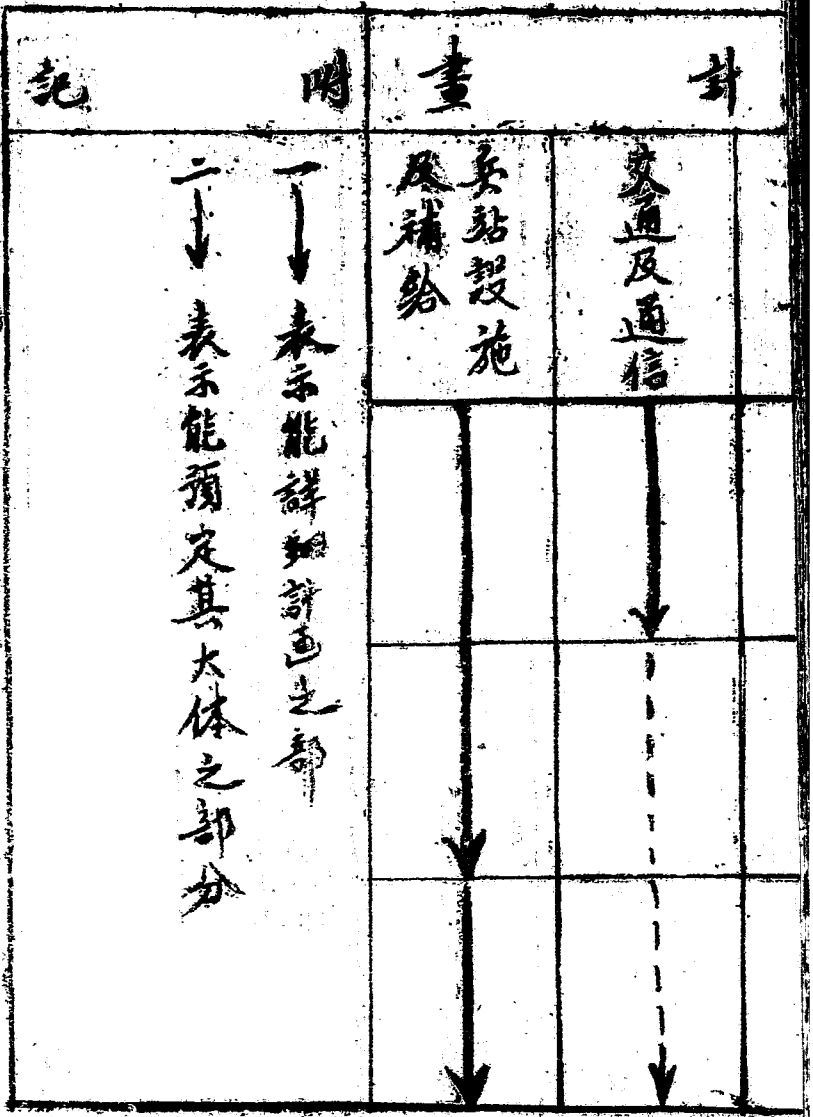 計畫
交通及通信
兵站設施
及補給
附記
一↓表示能詳細計画之部
二↓表示能預定其大体之部分